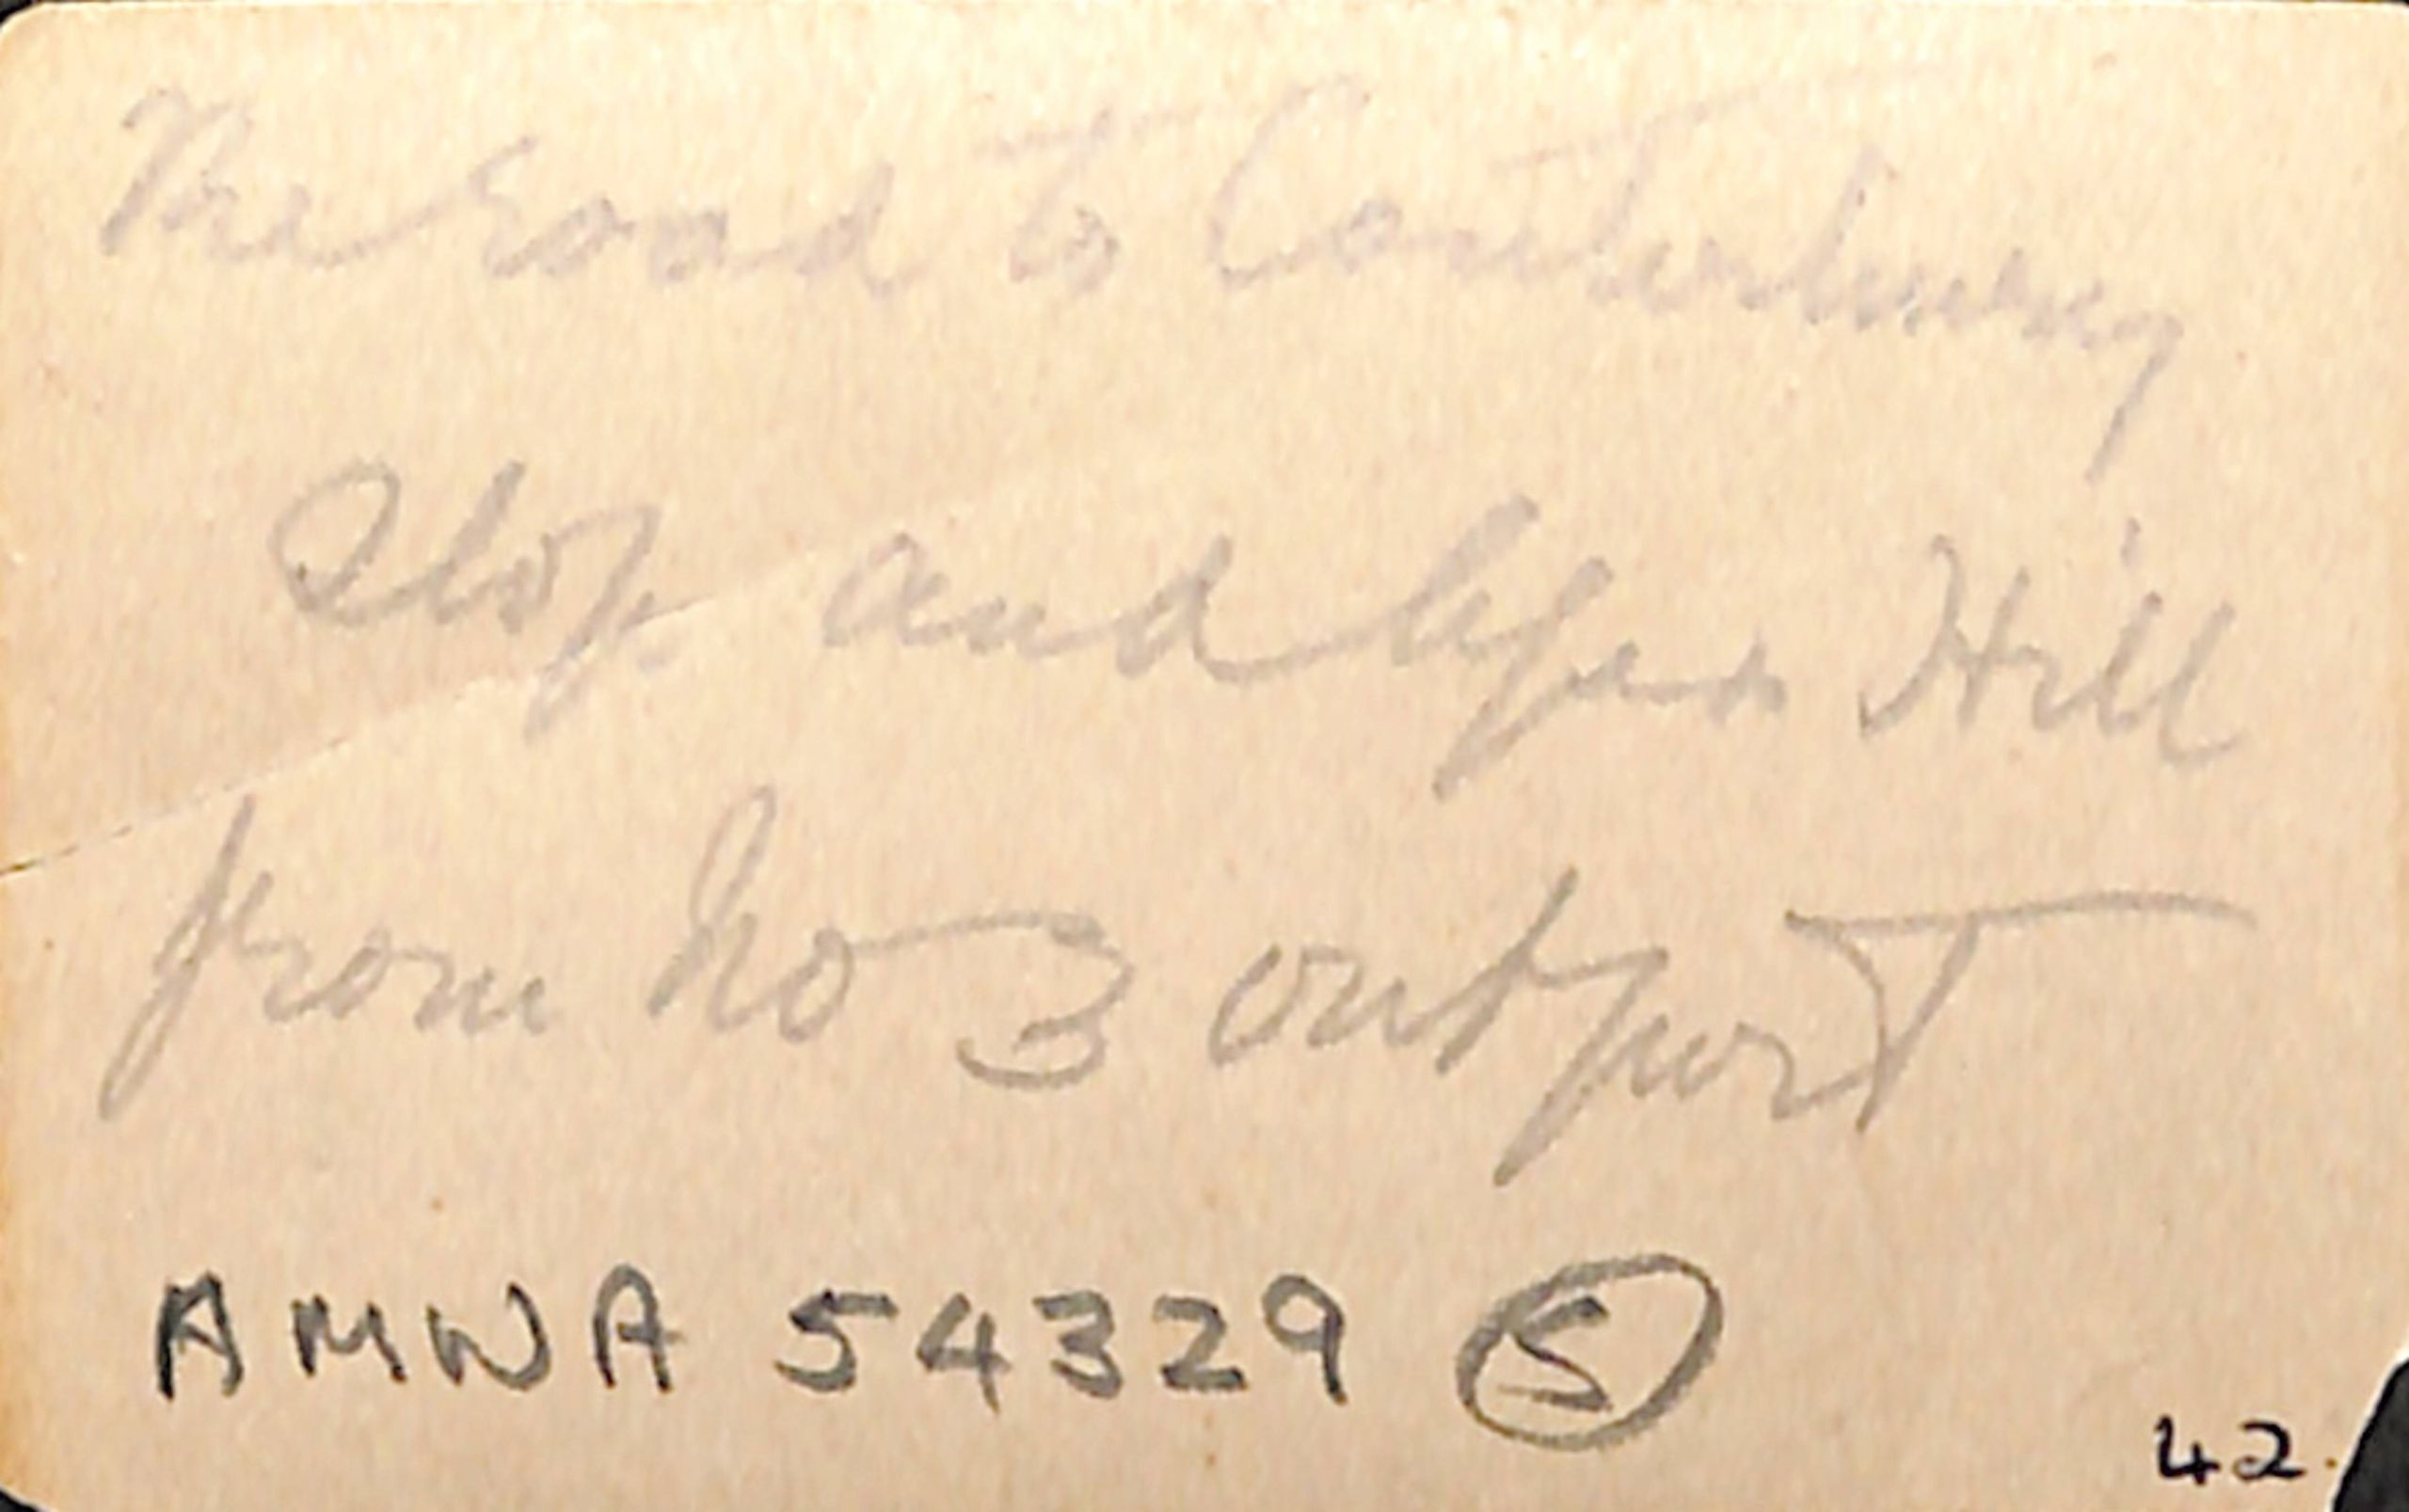 The road to Canterbury
Slop. and Hill
from No 3 outpost
AMWA 54329 S
42.